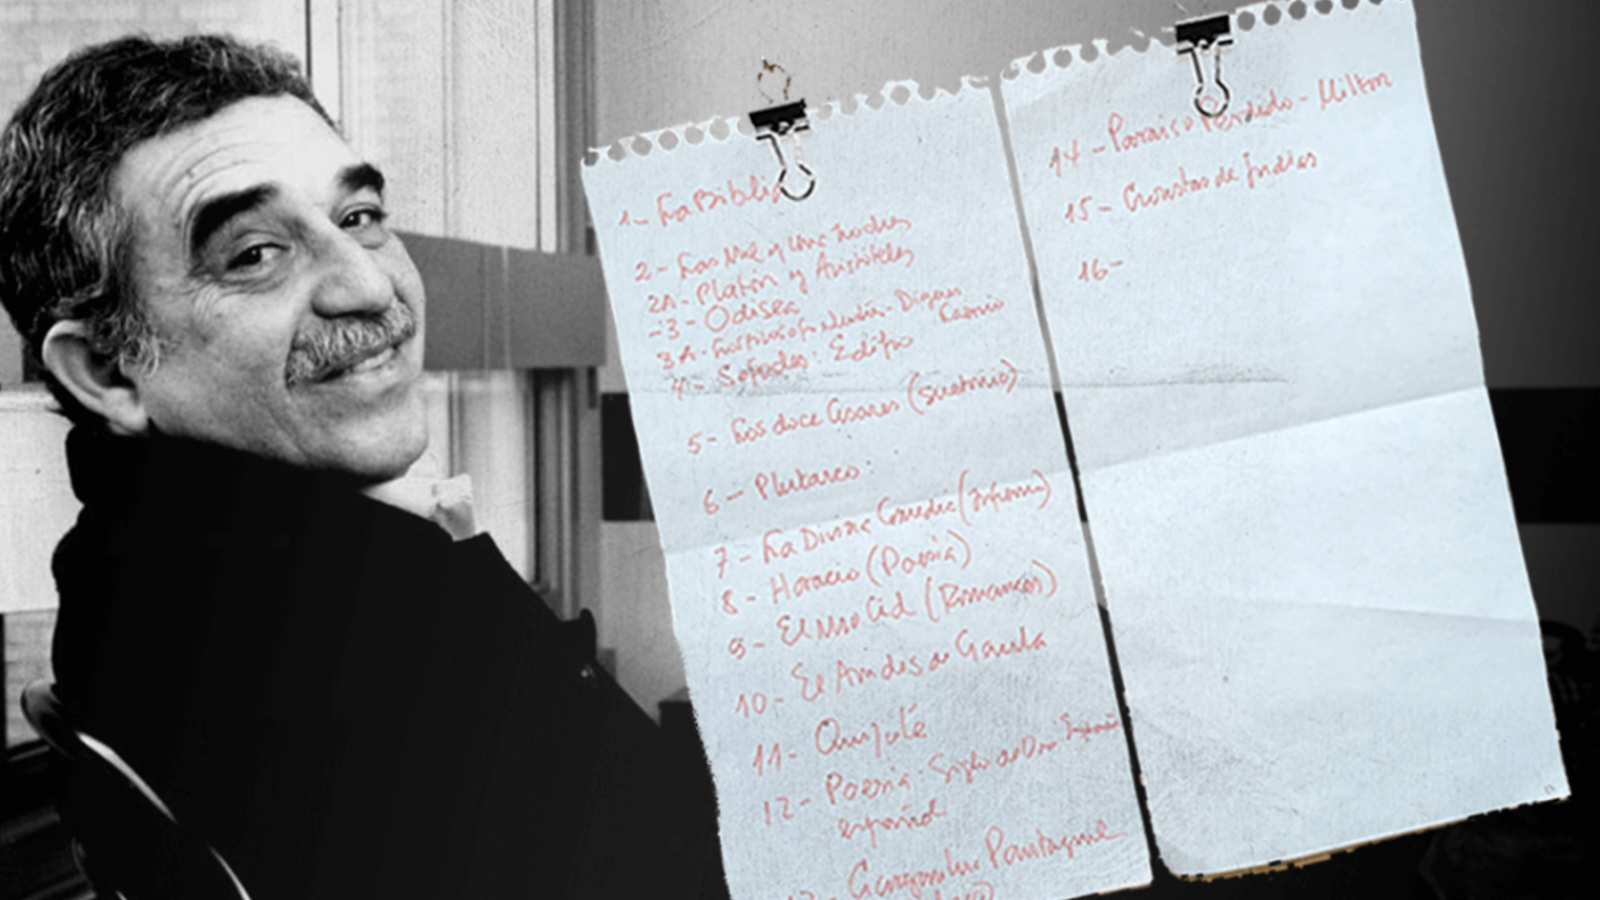 1- La Biblia
2- Las Mil y Una Noches
2A- Platón y Aristóteles
-3- Odisea
3A- Diógenes
Laercio
4- Sófocles: Edipo
5- Los doce Césares (Suetonio)
6- Plutarco
7- La Divina Comedia (Infierno)
8- Horacio (Poesía)
9- El Mio Cid (Romances)
10- El Amadis de Gaula
11- Quijote
12- Poesia Siglo de Oro
español
13- Gargantua Pantagruel
14- Paraiso Perdido - Milton
15- Cronistas de Indias
16-